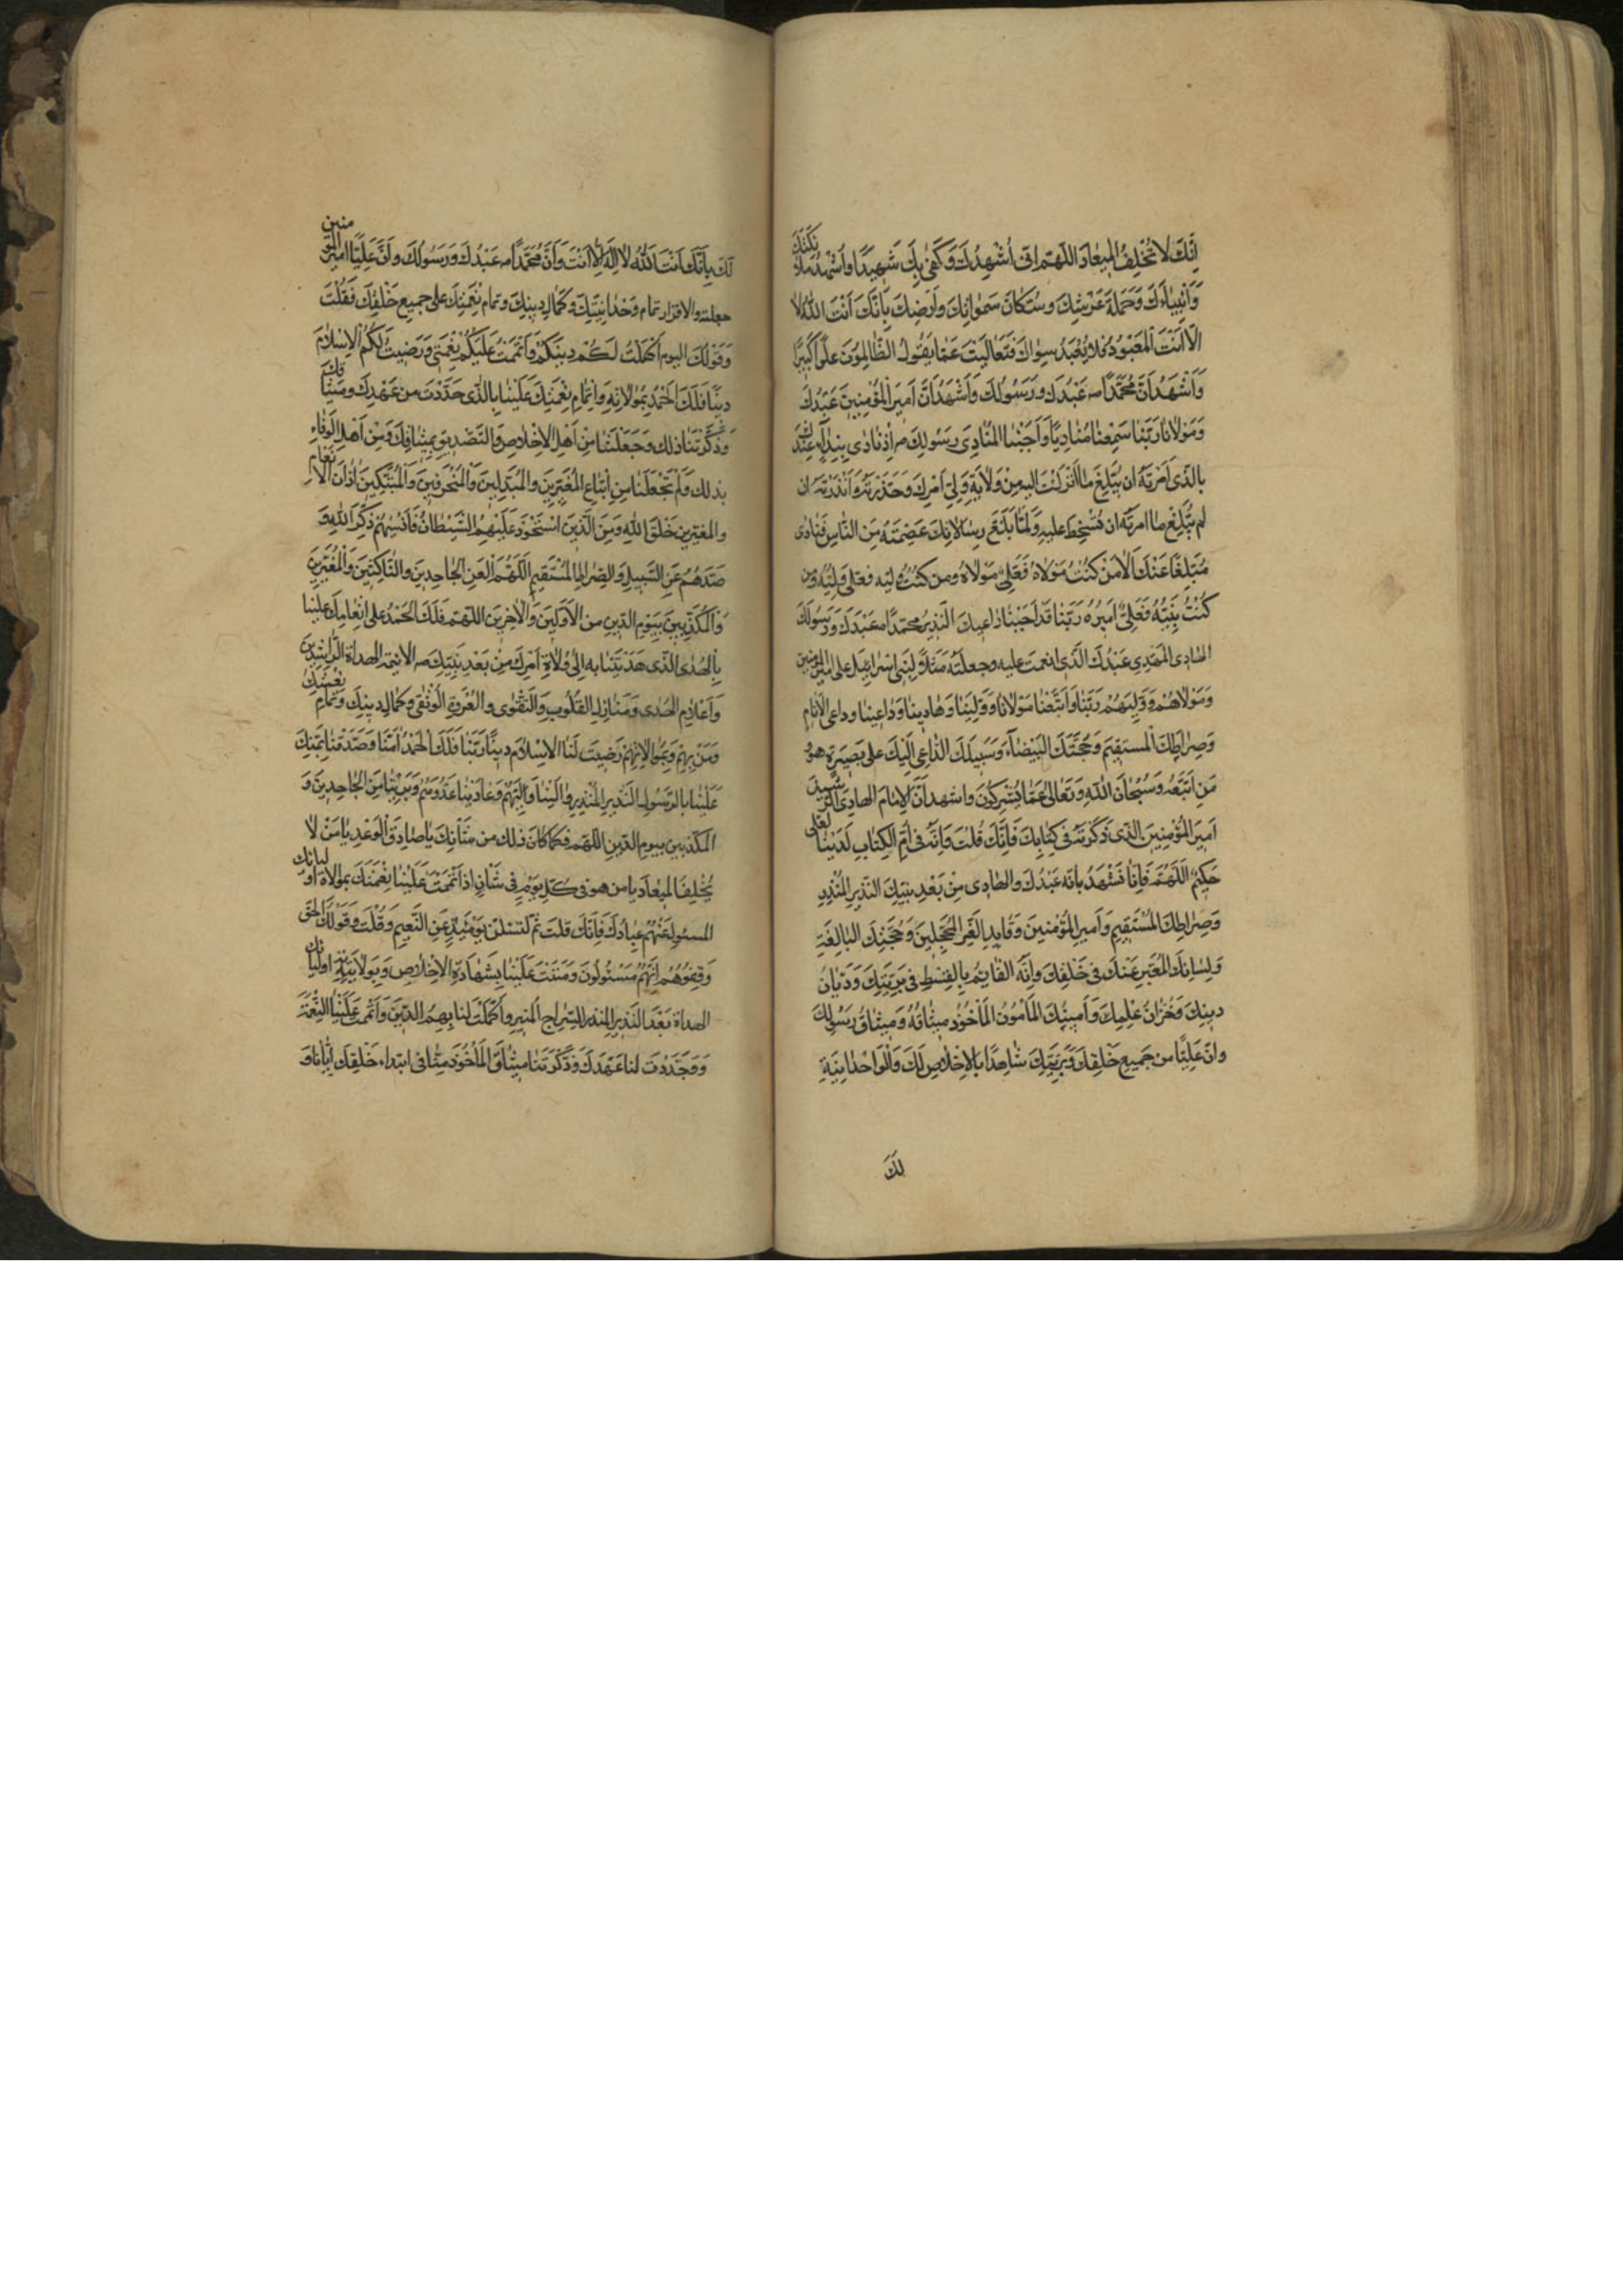 اِنَّكَ لَا تُخْلِفُ الْمِيعَادَ اَللّهُمَّ اِنّى اُشْهِدُكَ وَكَفى بِكَ شَهِيدًا وَاُشْهِدُ مَلَائِكَتَكَ
وَاَنْبِيَاءَكَ وَحَمَلَةَ عَرْشِكَ وَسُكَّانَ سَمَوَاتِكَ وَاَرْضِكَ بِاَنَّكَ اَنْتَ اللّهُ لَا
اِلّا اَنْتَ الْمَعْبُودُ فَلَا يُعْبَدُ سِوَاكَ فَتَعَالَيْتَ عَمَّا يَقُولُ الظَّالِمُونَ عُلُوًّا كَبِيرًا
وَاَشْهَدُ اَنَّ مُحَمَّدًا ص عَبْدُكَ وَرَسُولُكَ وَاَشْهَدُ اَنَّ اَمِيرَ الْمُؤْمِنِينَ عَبْدُكَ
وَمَوْلَانَا رَبَّنَا سَمِعْنَا مُنَادِيًا وَاَجَبْنَا الْمُنَادِىَ رَسُولَكَ ص اِذْ نَادى بِنِدَاءٍ عَنْكَ
بِالَّذى اَمَرْتَهُ اَنْ يُبَلِّغَ مَا اَنْزَلْتَ اِلَيْهِ مِنْ وَلَايَةِ وَلِىِّ اَمْرِكَ وَحَذَّرْتَهُ وَاَنْذَرْتَهُ اِنْ
لَمْ يُبَلِّغْ مَا اَمَرْتَهُ اَنْ تَسْخَطَ عَلَيْهِ وَلَمَّا بَلَّغَ رِسَالَاتِكَ عَصَمْتَهُ مِنَ النَّاسِ فَنَادى
مُبَلِّغًا عَنْكَ اَلَا مَنْ كُنْتُ مَوْلَاهُ فَعَلِىٌّ مَوْلَاهُ وَمَنْ كُنْتُ وَلِيَّهُ فَعَلِىٌّ وَلِيُّهُ وَمَنْ
كُنْتُ نَبِيَّهُ فَعَلِىٌّ اَمِيرُهُ رَبَّنَا قَدْ اَجَبْنَا دَاعِيَكَ النَّذِيرَ مُحَمَّدًا ص عَبْدَكَ وَرَسُولَكَ
الهادى المهدى عَبْدُكَ الَّذى انعمت عليه وجعلته مَثَلًا لِبَنى اِسْرَائِيلَ على امير المؤمنين
وَمَوْلَاهُمْ وَوَلِيِّهِمْ رَبَّنَا وَاتَّبَعْنَا مَوْلَانَا وَوَلِيَّنَا وَهَادِينَا وَدَاعِينَا وداعى الْاَنَامِ
وَصِرَاطَكَ الْمُسْتَقِيمَ وَحُجَّتَكَ الْبَيْضَاءَ وَسَبِيلَكَ الدَّاعِىَ اِلَيْكَ عَلى بَصِيرَةٍ هُوَ وَ
مَنِ اتَّبَعَهُ وَسُبْحَانَ اللّهِ وَتَعَالى عَمَّا يُشْرِكُونَ وَاشهد اَنَّهُ الْاِمَامُ الْهَادِى الرَّشِيدُ
اَمِيرُ الْمُؤْمِنِينَ الَّذى ذَكَرْتَهُ فى كِتَابِكَ فَاِنَّكَ قُلْتَ وَاِنَّهُ فى اُمِّ الْكِتَابِ لَدَيْنَا لَعَلِىٌّ
حَكِيمٌ اَللّهُمَّ فَاِنَّا نَشْهَدُ بِاَنَّهُ عَبْدُكَ وَالْهَادى مِنْ بَعْدِ نَبِيِّكَ النَّذِيرِ الْمُنْذِرِ
وَصِرَاطُكَ الْمُسْتَقِيمُ وَاَمِيرُ الْمُؤْمِنِينَ وَقَائِدُ الْغُرِّ الْمُحَجَّلِينَ وَحُجَّتُكَ الْبَالِغَةُ
وَلِسَانُكَ الْمُعَبِّرُ عَنْكَ فى خَلْقِكَ وَاِنَّهُ الْقَائِمُ بِالْقِسْطِ فى بَرِيَّتِكَ وَدَيَّانُ
دِينِكَ وَخُزَّانُ عِلْمِكَ وَاَمِينُكَ الْمَاْمُونُ الْمَاْخُوذُ مِيثَاقُهُ وَمِيثَاقُ رَسُولِكَ
وانّ عَلِيًّا من جَمِيعِ خَلْقِكَ وَبَرِيَّتِكَ شَاهِدًا بِالْاِخْلَاصِ لَكَ وَالْوَاحْدَانِيَّةِ
لَكَ
لَكَ بِاَنَّكَ اَنْتَ اللّهُ لَا اِلهَ اِلَّا اَنْتَ وَاَنَّ مُحَمَّدًا ص عَبْدُكَ وَرَسُولُكَ وَاَنَّ عَلِيًّا امير المؤمنين
جعلته والاقرار تمام وَحْدَانِيَّتِكَ وَكَمَالِ دِينِكَ وَتَمَامَ نِعْمَتِكَ عَلى جَمِيعِ خَلْقِكَ فَقُلْتَ
وَقَوْلُكَ اليوم اَكْمَلْتُ لَكُمْ دِينَكُمْ وَاَتْمَمْتُ عَلَيْكُمْ نِعْمَتى وَرَضِيتُ لَكُمُ الْاِسْلَامَ
دِينًا فَلَكَ الْحَمْدُ بِمُوَالَاتِهِ وَاِتْمَامِ نِعْمَتِكَ عَلَيْنَا بِالَّذى جَدَّدْتَ مِنْ عَهْدِكَ وَمِيثَاقِكَ
وَذَكَّرْتَنَا ذلِكَ وَجَعَلْتَنَا مِنْ اَهْلِ الْاِخْلَاصِ وَالتَّصْدِيقِ بِمِيثَاقِكَ وَمِنْ اَهْلِ الْوَفَاءِ
بذلك وَلَمْ تَجْعَلْنَا مِنْ اَتْبَاعِ الْمُغَيِّرِينَ وَالْمُبَدِّلِينَ وَالْمُنْحَرِفِينَ وَالْمُبَتِّكِينَ اٰذَانَ الْاَنْعَامِ
والمغيرين خَلْقَ اللّهِ وَمِنَ الَّذينَ اسْتَحْوَذَ عَلَيْهِمُ الشَّيْطَانُ فَاَنْسيهُمْ ذِكْرَ اللّهِ وَ
صَدَّهُمْ عَنِ السَّبِيلِ وَالصِّرَاطِ الْمُسْتَقِيمِ اَللّهُمَّ الْعَنِ الْجَاحِدِينَ وَالنَّاكِثِينَ وَالْمُغَيِّرِينَ
وَالْمُكَذِّبِينَ بِيَوْمِ الدِّينِ مِنَ الْاَوَّلِينَ وَالْاٰخِرِينَ اللّهُمَّ فَلَكَ الْحَمْدُ عَلى اِنْعَامِكَ عَلَيْنَا
بِالْهُدَى الَّذى هَدَيْتَنَا بِهِ اِلى وُلَاةِ اَمْرِكَ مِنْ بَعْدِ نَبِيِّكَ ص الائمة الهداة الرَّاشِدِينَ
وَاَعْلَامِ الْهُدى وَمَنَارِ الْقُلُوبِ وَالتَّقْوى وَالْعُرْوَةِ الْوُثْقى وَكَمَالِ دِينِكَ وَتَمَامِ نِعْمَتِكَ
وَمَنْ بِهِمْ وَبِمُوَالَاتِهِمْ رَضِيتَ لَنَا الْاِسْلَامَ دِينًا رَبَّنَا فَلَكَ الْحَمْدُ اٰمَنَّا وَصَدَّقْنَا بِمَنِّكَ
عَلَيْنَا بِالرَّسُولِ النَّذِيرِ الْمُنْذِرِ وَالَيْنَا وَلِيَّهُمْ وَعَادَيْنَا عَدُوَّهُمْ وَبَرِئْنَا مِنَ الْجَاحِدِينَ وَ
الْمُكَذِّبِينَ بِيَوْمِ الدِّينِ اللّهُمَّ فَكَمَا كَانَ ذلِكَ مِنْ شَاْنِكَ يَا صَادِقَ الْوَعْدِ يَا مَنْ لَا
يُخْلِفُ الْمِيعَادَ يَا مَنْ هُوَ فى كُلِّ يَوْمٍ فى شَاْنٍ اِذْ اَتْمَمْتَ عَلَيْنَا نِعْمَتَكَ بِمُوَالَاةِ اَوْلِيَائِكَ
الْمَسْئُولِ عَنْهُمْ عِبَادُكَ فَاِنَّكَ قُلْتَ ثُمَّ لَتُسْئَلُنَّ يَوْمَئِذٍ عَنِ النَّعِيمِ وَقُلْتَ وَقَوْلُكَ الْحَقُّ
وَقِفُوهُمْ اِنَّهُمْ مَسْئُولُونَ وَمَنَنْتَ عَلَيْنَا بِشَهَادَةِ الْاِخْلَاصِ وَبِوَلَايَةِ اوليائك
الهداة بَعْدَ النَّذِيرِ الْمُنْذِرِ السِّرَاجِ الْمُنِيرِ وَاَكْمَلْتَ لَنَا بِهِمُ الدِّينَ وَاَتْمَمْتَ عَلَيْنَا النِّعْمَةَ
وَجَدَّدْتَ لَنَا عَهْدَكَ وَذَكَّرْتَنَا مِيثَاقَكَ الْمَاْخُوذَ مِنَّا فِى ابْتِدَاءِ خَلْقِكَ اِيَّانَا وَ